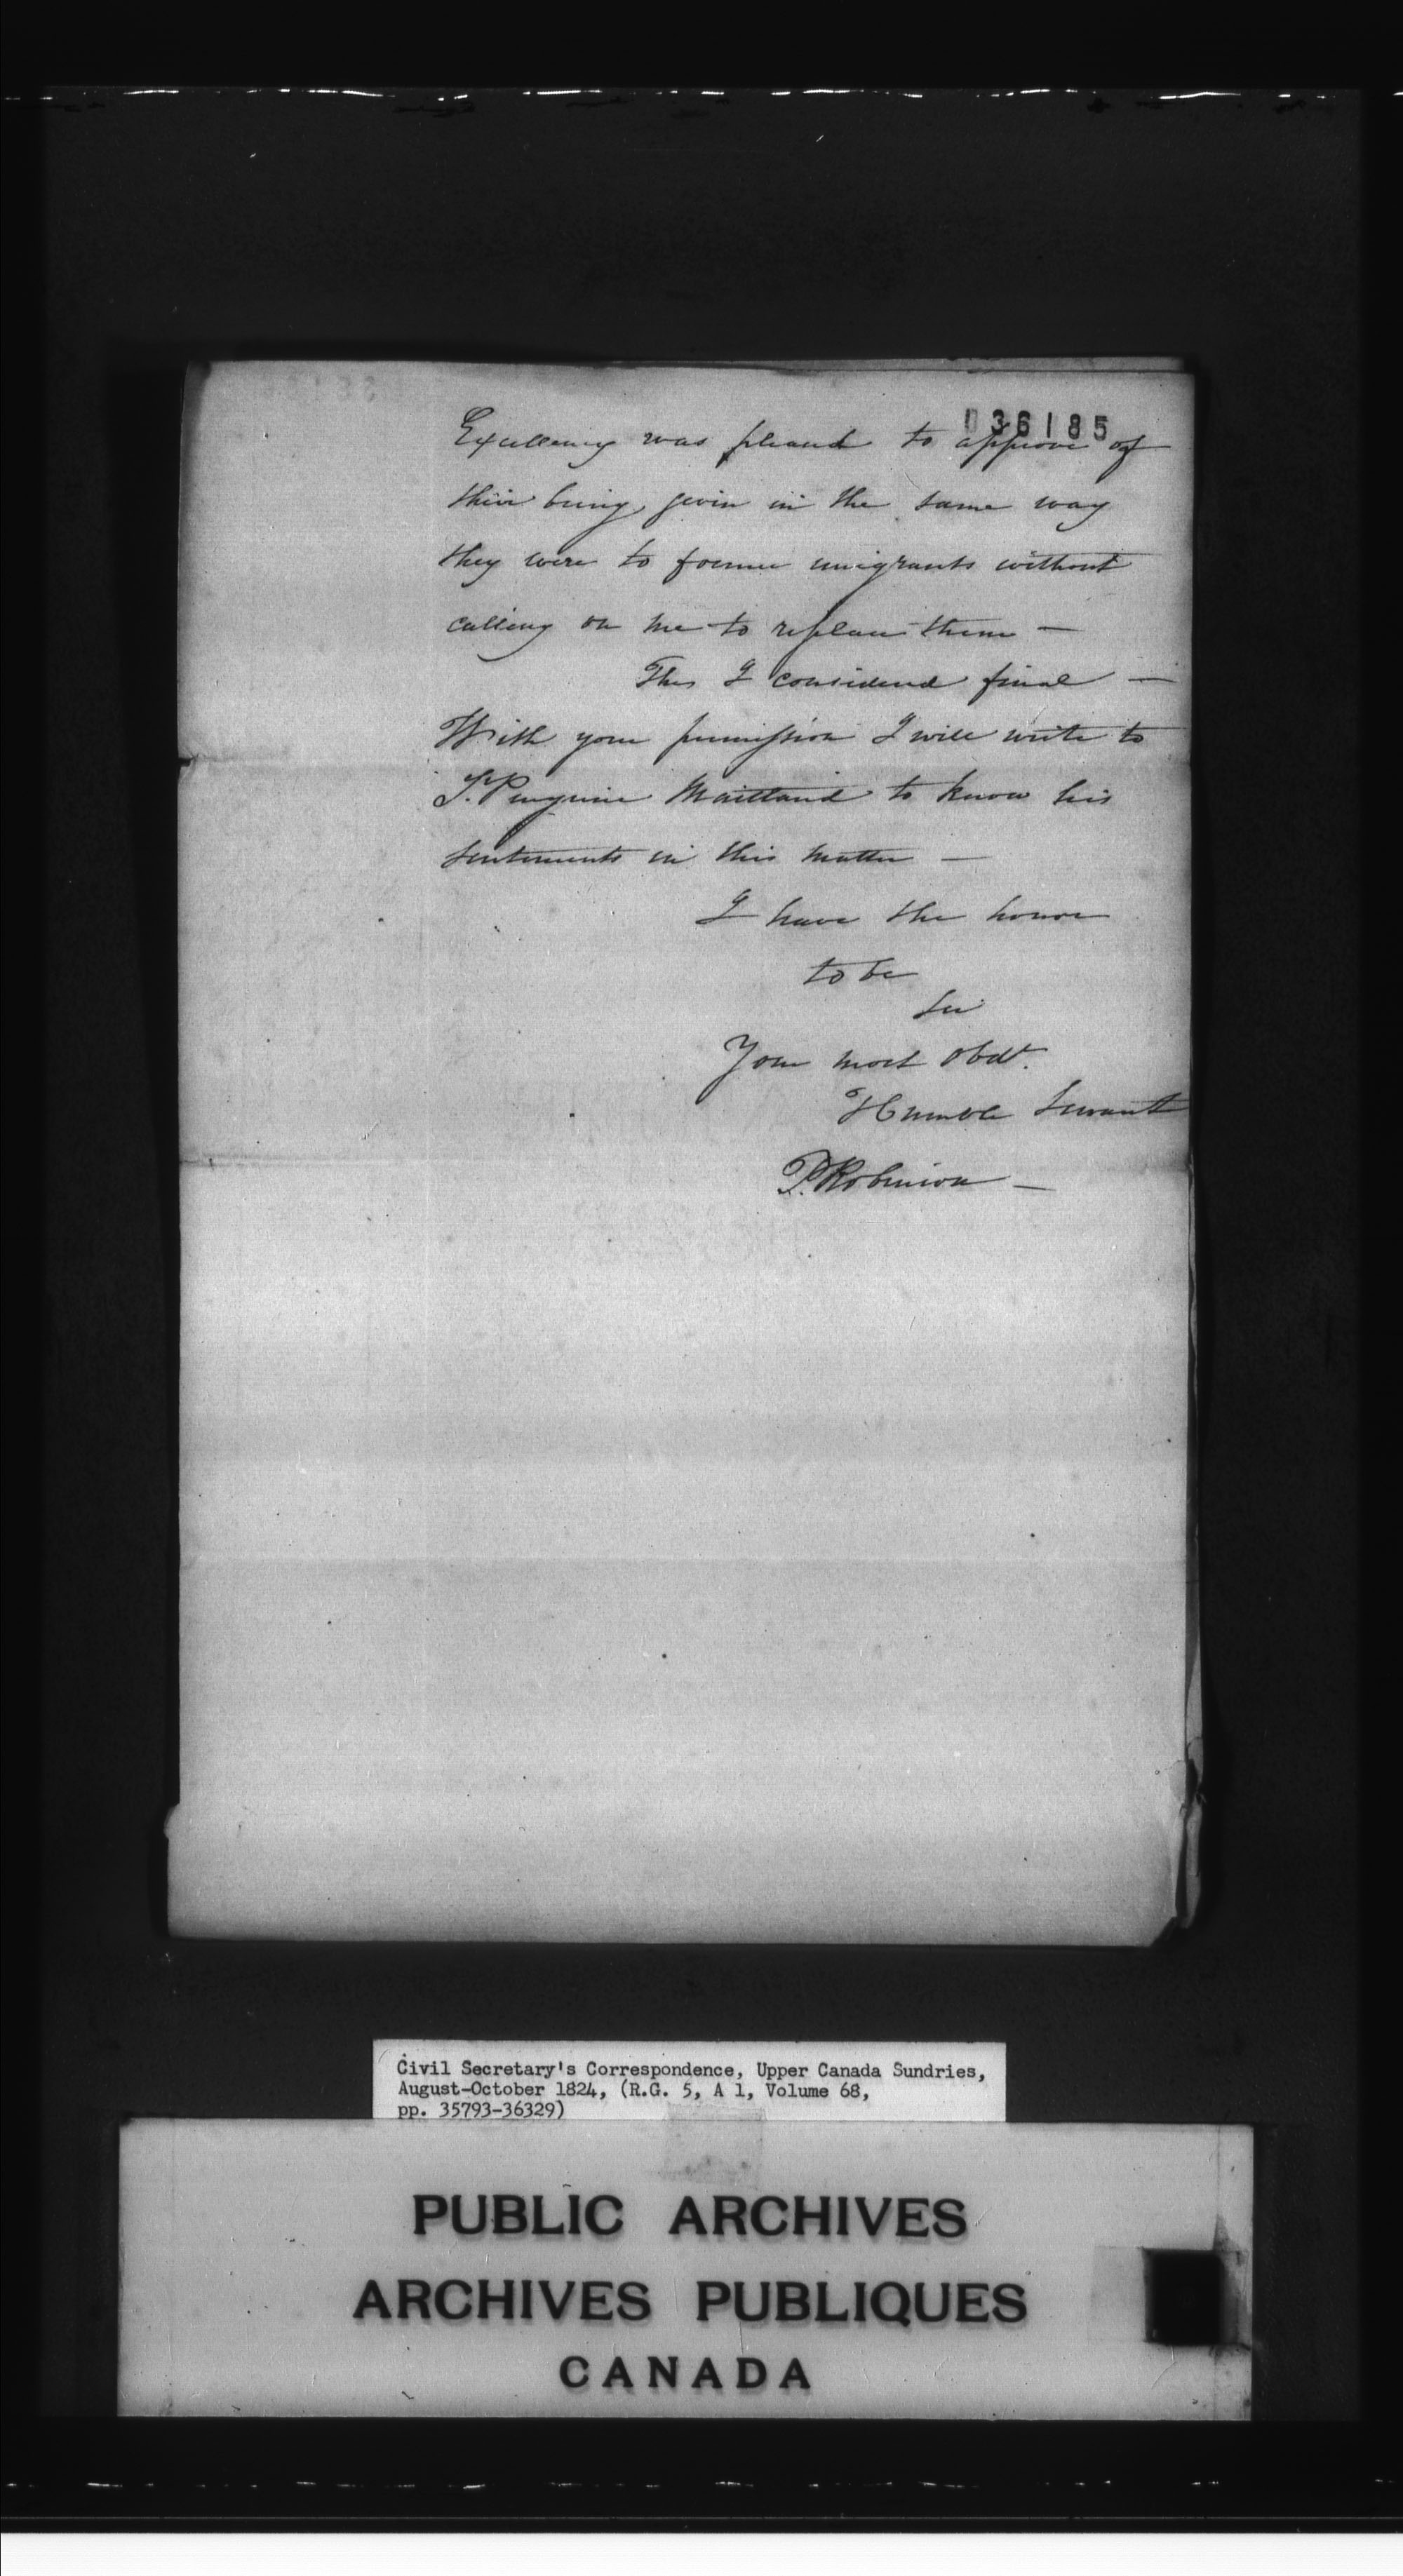 036185
Excellency was pleased to approve of
their being given in the same way
they were to former emigrants without
calling on me to replace them —
This I considered final —
With your permission I will write to
S. Peregrine Maitland to know his
sentiments in this matter —
I have the honor
to be
Sir
Your most Obdt.
Humble Servant
P. Robinson —
Civil Secretary's Correspondence, Upper Canada Sundries,
August-October 1824, (R.G. 5, A 1, Volume 68,
pp. 35793-36329)
PUBLIC ARCHIVES
ARCHIVES PUBLIQUES
CANADA